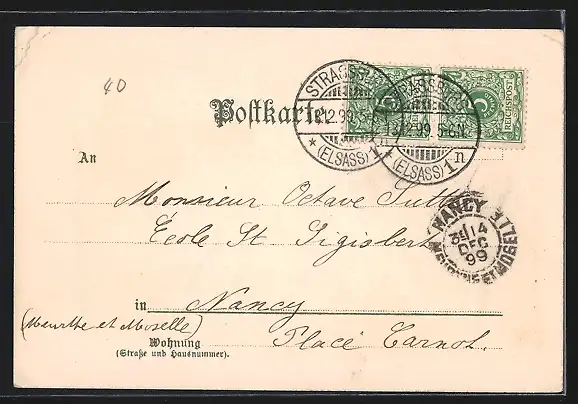 40
Postkarte
STRASSBURG
13.12.99.5-6N.
* (ELSASS) 1 n
REICHSPOST
5
An
Monsieur Octave
École St Sigisbert
NANCY
14
DEC
99
MEURTHE-ET-MOSELLE
in Nancy
(Meurthe et Moselle)
Place Carnot.
Wohnung
(Straße und Hausnummer).